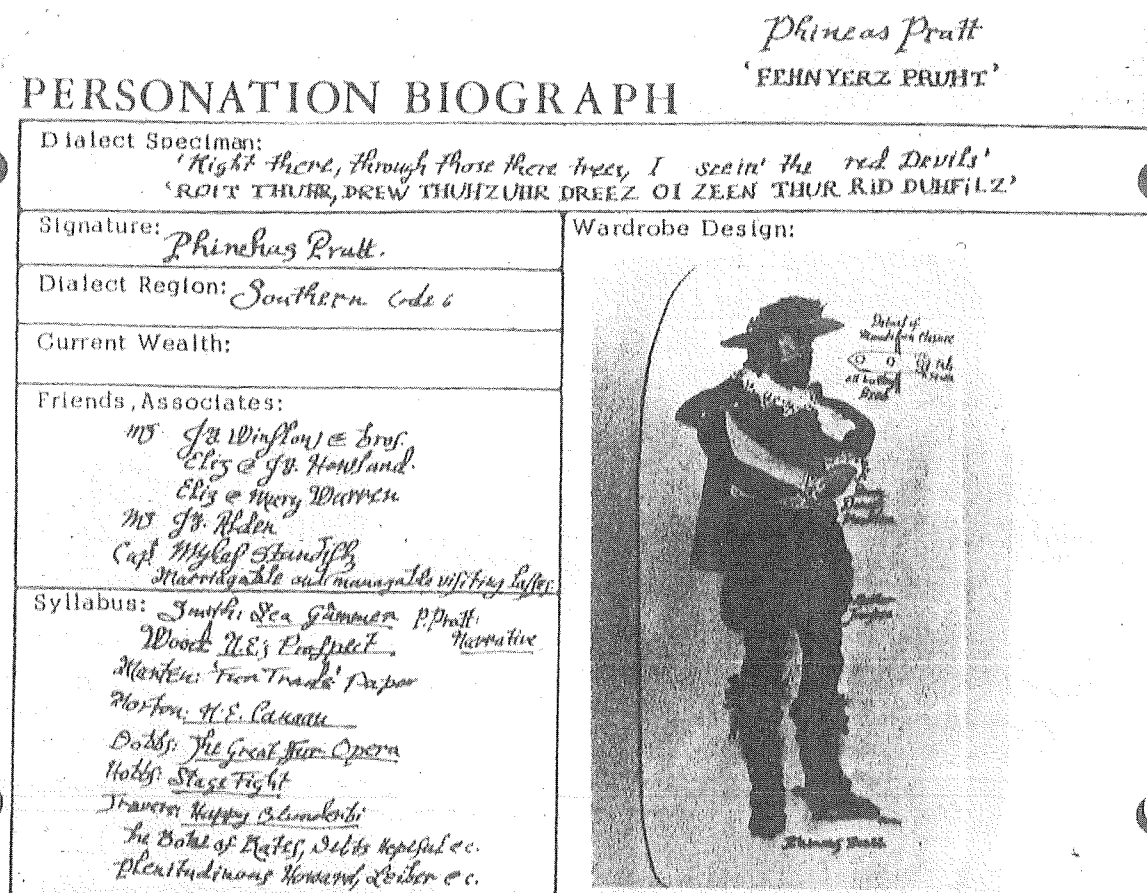 Phineas Pratt
'FEHNYERZ PRUHT'
PERSONATION BIOGRAPH
Dialect Speciman:
'Right there, through those there trees, I seein' the red Devils'
'ROIT THUHR, DREW THUHZUHR DREEZ OI ZEEN THUR RID DUHFILZ'
Signature: Phinehas Pratt.
Wardrobe Design:
Dialect Region: Southern Code 6
Current Wealth:
Friends, Associates:
Winslow & bros.
Eliz & Howland.
Eliz & Mary Warren
Alden
Capt Myles Standish
Marriagable and managable visiting lasses
Syllabus: Smith: Sea Grammer P. Pratt:
Wood: N.E.'s Prospect. Narrative
'Fur Trade' Paper
Morton: N.E. Canaan
Dobbs: The Great Fur Opera
Hobbs: Stage Fight
Travers: Happy
the of Rates, Hopeful &c.
Plenitudinous Howard, Leiber &c.
Detail of
Closure
all
Phineas Pratt.